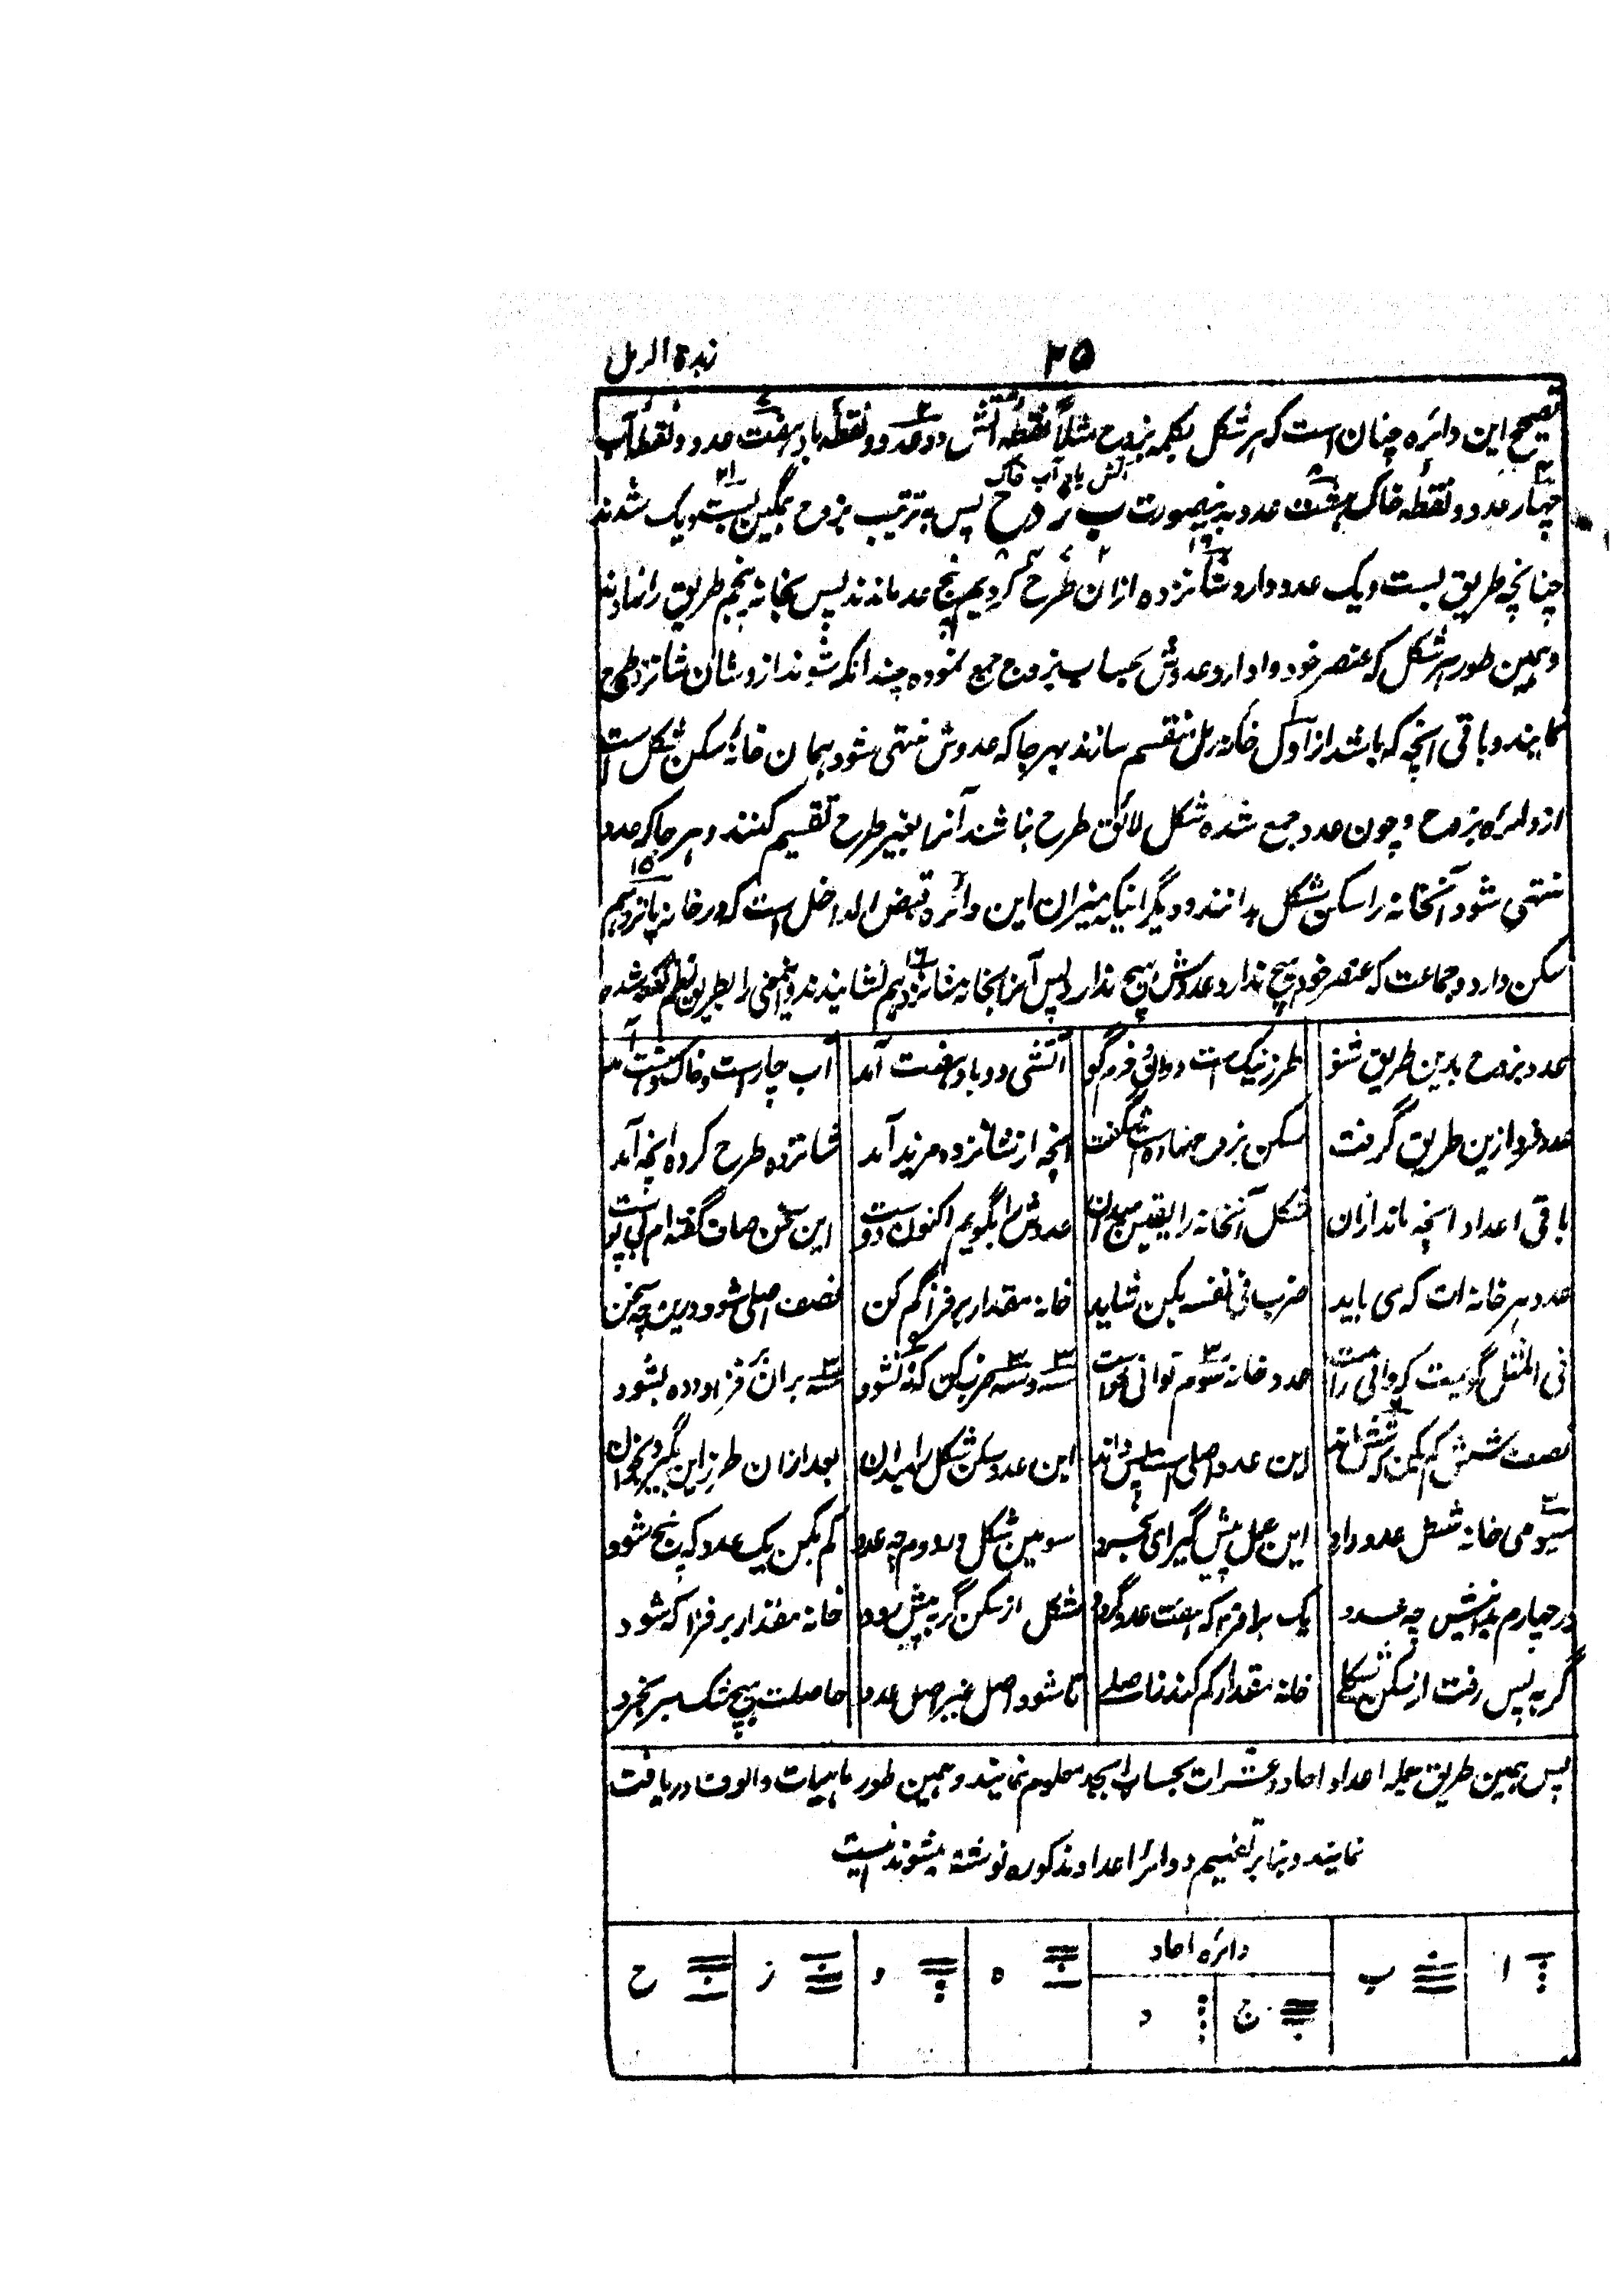 ۳۵
زبدة الرمل
تصحیح این دائره چنان است که هر شکل بکلمه بزوح مثلاً نقطه آتش دو عدد و نقطه باد هفت عدد و نقطه آب
۲ ۷
آتش باد آب خاک
چهار عدد و نقطه خاک هشت عدد بدینصورت ب ز د ح پس به ترتیب بزوح همگین بست و یک شدند
۴ ۸ ۲۱
۲ ۷ ۴ ۸
چنانچه طریق بست و یک عدد دارد شانزده ازان طرح کردیم پنج عدد ماندند پس بخانه پنجم طریق را نهادند
۱۶
و همین طور هر شکل که عنصر خود وا دارد عدوش بحساب بزوح جمع نموده چندانکه شوند ازوشان شانزده طرح
نمایند و باقی آنچه که باشد از اول خانه رمل منقسم سازند بهر جا که عدوش منتهی شود همان خانه سکن شکل است
از دائره بزوح و چون عدد جمع شده شکل لائق طرح نباشد آنرا بغیر طرح تقسیم کنند و هر جا که عدد
منتهی شود آنخانه را سکن شکل بدانند و دیگر اینکه میزان این دائره قبض الداخل است که در خانه پانزدهم
۱۵
سکن دارد و جماعت که عنصر خود هیچ ندارد عدوش هیچ ندارد پس آنرا بخانه شانزدهم نشانیدند و این معنی را بطریق نظم گفته شده
۱۶
عدد بزوح بدین طریق شنو | طرز نیک است دوائر فرمگو | آتشی دو باد هفت آمد | آب چار است و خاک هشت آمد
عدد فرد ازین طریق گرفت | سکن بزوح نهاده است شگفت | آنچه از شانزده مزید آمد | شانزده طرح کرده آنچه آمد
باقی اعداد آنچه ماند ازان | شکل آنخانه را یقین میدان | عدوش را بگویم اکنون دوست | این سخن صاف گفته ام
عدد هر خانه ات که می باید | ضرب فی نفسه بکن شاید | خانه مقدار بر فزا کم کن | نصف اصلی شود درین چه سخن
فی المثل گویمت که دانی راست | عدد خانه سوم توانی خواست | سه و سه ضرب کن که نه شود | سه بران بر فزا وده بشود
نصف شش کم بکن که شش ماند | این عدد اصلی است پس داند | این عدد سکن شکل را میدان | بعد ازان طرز این بگیر و بخوان
سیومی خانه شکل عدد دارد | این عمل پیش گیر ای بخرد | سومین شکل در دوم چه عدد | کم بکن یک عدد که پنج شود
در چهارم چه عدد | یک برا فزا که هفت عدد گردد | شکل از سکن گر به پیش رود | خانه مقدار بر فزا که شود
گر به پس رفت از سکن شکلے | خانه مقدار کم کند نا صلے | تا شود اصل غیر اصل عدد | حاصلت هیچ شک مبر بخرد
پس همین طریق جمله اعداد احاد و عشرات بحساب ابجد معلوم نمایند و همین طور مایات و الوف دریافت
نمایند و بنا بر تفهیم دوائر اعداد مذکوره نوشته میشوند اینست
دائره احاد
ا | ب | ج | د | ه | و | ز | ح